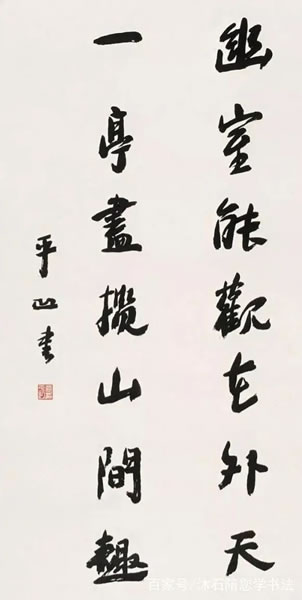 幽室能觀世外天
一亭盡攬山間趣
平凹書
百家号/沐石陪您学书法